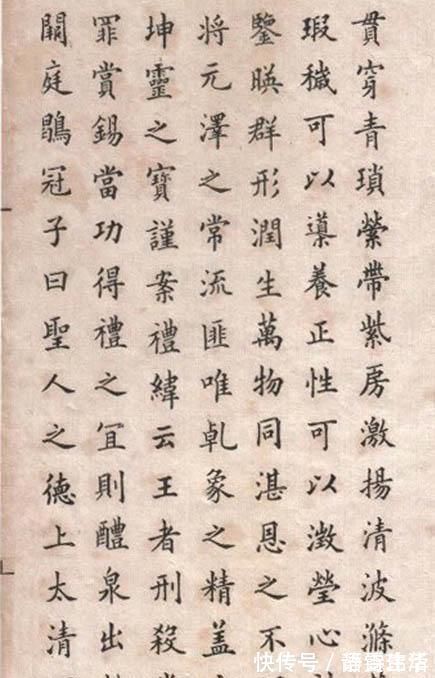 貫穿青瑣縈帶紫房激揚清波滌
瑕穢可以導養正性可以澂瑩心
鑒暎群形潤生萬物同湛恩之不
將元澤之常流匪唯乹象之精盖
坤靈之寶謹案禮緯云王者刑殺
罪賞錫當功得禮之宜則醴泉出
闕庭鶡冠子曰聖人之德上太清
快传号/静